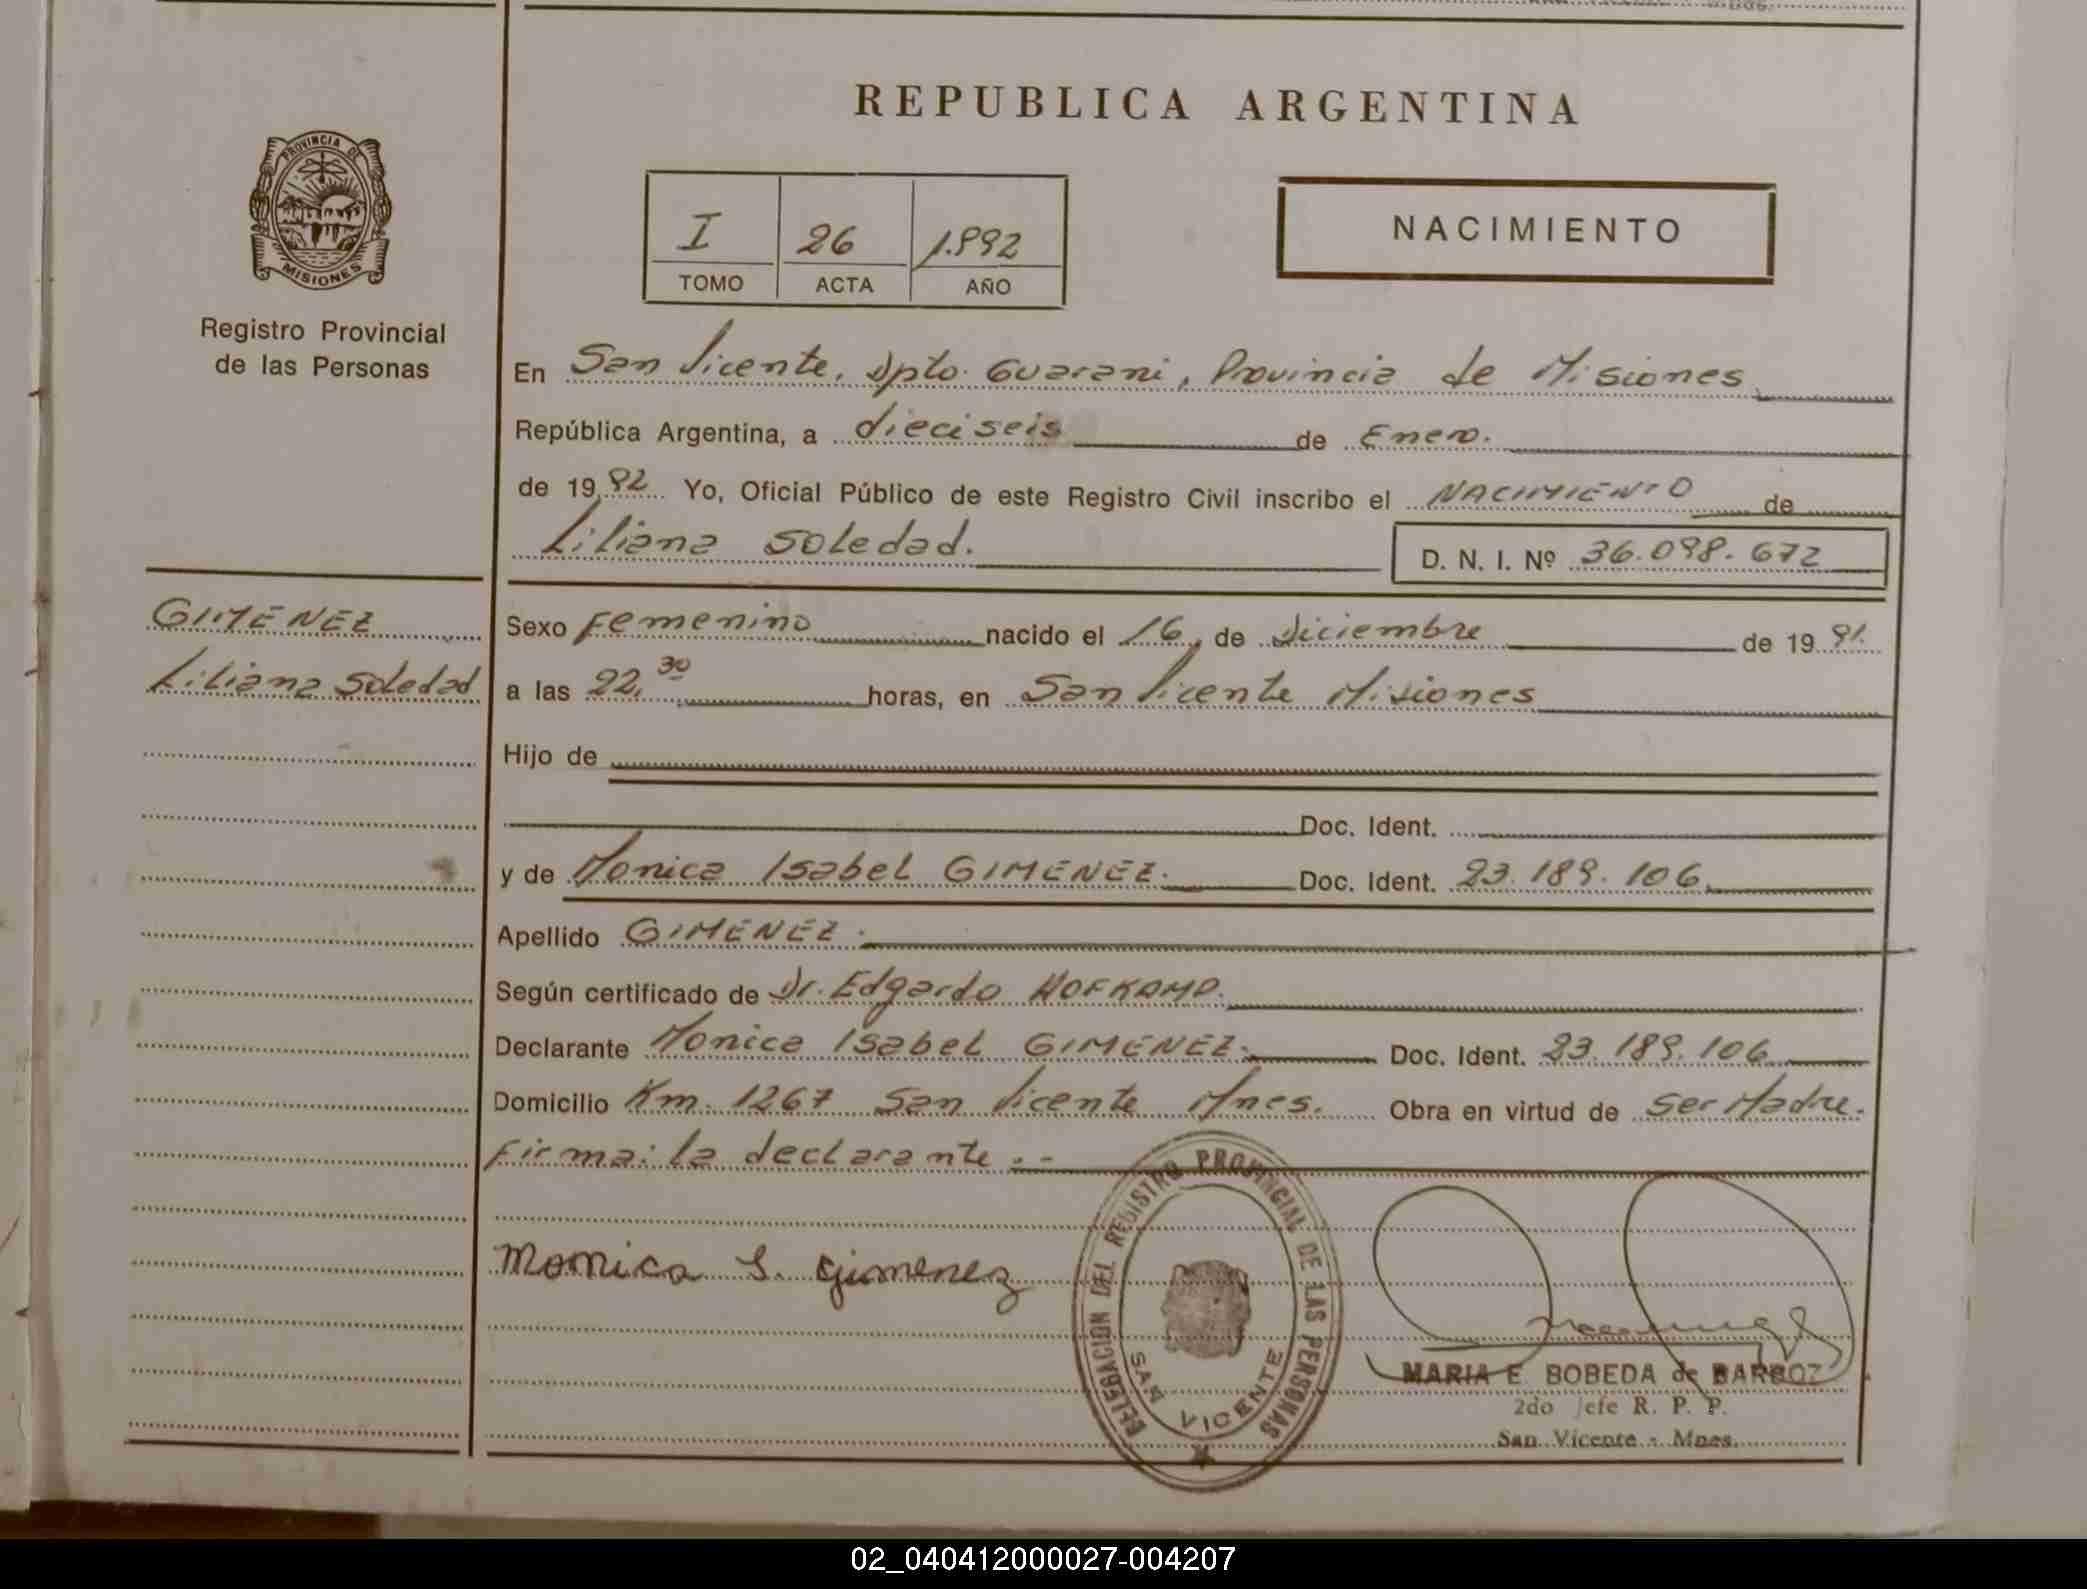 REPUBLICA ARGENTINA
PROVINCIA DE
MISIONES
Registro Provincial
de las Personas
I 26 1.992
TOMO ACTA AÑO
NACIMIENTO
En San Vicente, Dpto. Guarani, Provincia de Misiones
República Argentina, a dieciseis de Enero.
de 19 92 Yo, Oficial Público de este Registro Civil inscribo el NACIMIENTO de
Liliana Soledad.
D. N. I. Nº 36.098.672
GIMENEZ
Liliana Soledad
Sexo Femenino nacido el 16 de Diciembre de 19 91.
a las 22,30 horas, en San Vicente Misiones
Hijo de
Doc. Ident.
y de Monica Isabel GIMENEZ. Doc. Ident. 23.189.106
Apellido GIMENEZ.
Según certificado de Dr. Edgardo HOFKAMP.
Declarante Monica Isabel GIMENEZ. Doc. Ident. 23.189.106
Domicilio Km. 1267 San Vicente Mnes. Obra en virtud de Ser Madre.
Firma: la declarante.-
Monica I. Gimenez
DELEGACION DEL REGISTRO PROVINCIAL DE LAS PERSONAS
SAN VICENTE
MARIA E. BOBEDA de BARBOZ
2do Jefe R. P. P.
San Vicente - Mnes.
02_040412000027-004207